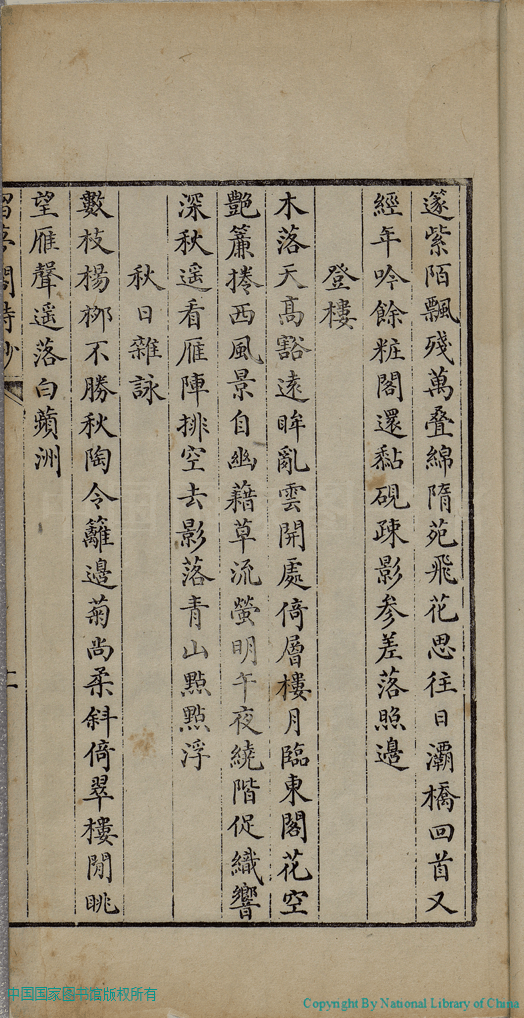 篴紫陌飄殘萬疊綿隋苑飛花思往日灞橋回首又
經年吟餘粧閣還黏硯疎影參差落照邊
登樓
木落天高豁遠眸亂雲開處倚層樓月臨東閣花空
艷簾捲西風景自幽藉草流螢明午夜繞階促織響
深秋遥看雁陣排空去影落青山點點浮
秋日雜詠
數枝楊栁不勝秋陶令籬邊菊尚柔斜倚翠樓閒眺
望雁聲遥落白蘋洲
閣詩鈔
中国国家图书馆版权所有
Copyright By National Library of China